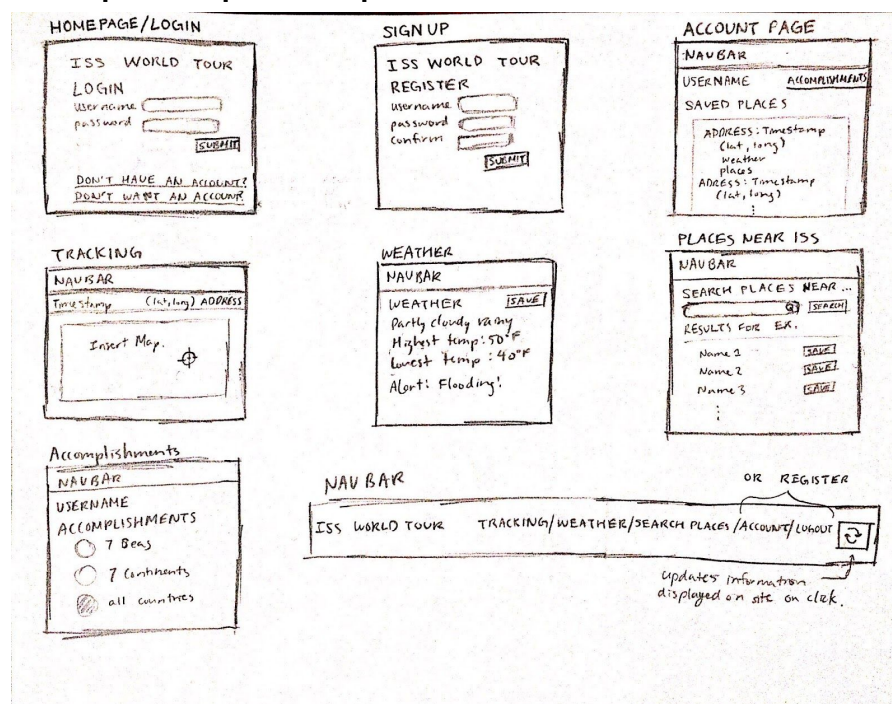 HOMEPAGE/LOGIN
ISS WORLD TOUR
LOGIN
username
password
SUBMIT
DON'T HAVE AN ACCOUNT?
DON'T WANT AN ACCOUNT?
SIGN UP
ISS WORLD TOUR
REGISTER
username
password
confirm
SUBMIT
ACCOUNT PAGE
NAVBAR
USERNAME ACCOMPLISHMENTS
SAVED PLACES
ADDRESS: Timestamp
(lat, long)
weather
places
ADRESS: Timestamp
(lat, long)
⋮
TRACKING
NAVBAR
Timestamp (lat, long) ADDRESS
Insert Map.
WEATHER
NAVBAR
WEATHER SAVE
Partly cloudy rainy
Highest temp: 50°F
Lowest temp: 40°F
Alert: Flooding!
PLACES NEAR ISS
NAVBAR
SEARCH PLACES NEAR ...
SEARCH
RESULTS FOR EX.
Name 1 SAVE
Name 2 SAVE
Name 3 SAVE
⋮
Accomplishments
NAVBAR
USERNAME
ACCOMPLISHMENTS
7 Seas
7 Continents
all countries
NAV BAR
OR REGISTER
ISS WORLD TOUR TRACKING/WEATHER/SEARCH PLACES/ACCOUNT/LOGOUT
updates information
displayed on site on click.